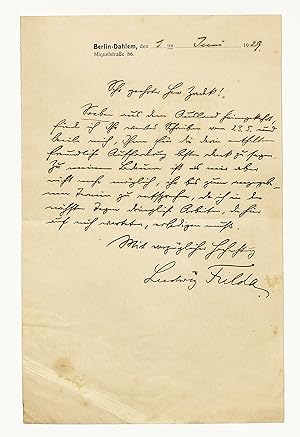 Berlin-Dahlem, den 1ten Juni 1929
Miquelstraße 86.
Sehr geehrter Herr Zadek!
Soeben aus dem Ausland heimgekehrt,
finde ich Ihr wertes Schreiben vom 23.5. und
beeile mich, Ihnen für die darin enthaltene
freundliche Aufforderung besten Dank zu sagen.
Zu meinem Bedauern ist es mir aber
nicht mehr möglich, ihr bis zum angegebe-
nen Termin zu entsprechen, da ich in den
nächsten Tagen dringliche Arbeiten, die hier
auf mich warteten, erledigen muß.
Mit vorzüglicher Hochachtung
Ludwig Fulda.